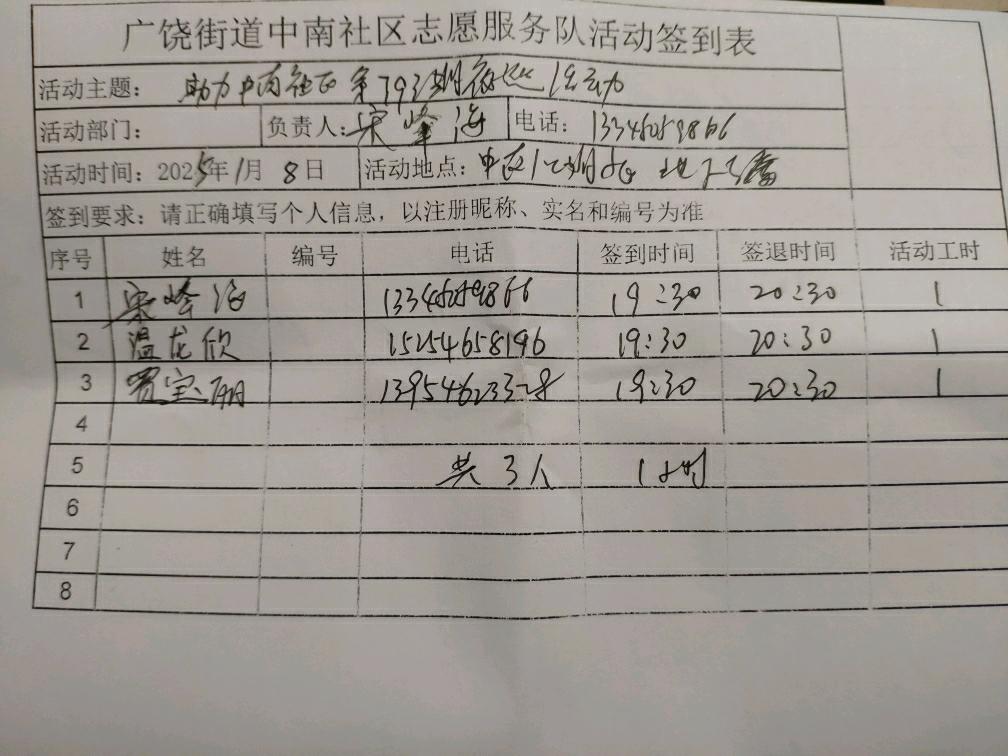 广饶街道中南社区志愿服务队活动签到表
活动主题: 助力中南社区第793期夜巡活动
活动部门: 负责人: 宋峰海 电话: 13345059866
活动时间: 2025年1月8日 活动地点: 中 1 2期 地下
签到要求: 请正确填写个人信息，以注册昵称、实名和编号为准
序号 姓名 编号 电话 签到时间 签退时间 活动工时
1 宋峰海 13345059866 19:30 20:30 1
2 温龙欣 15254658196 19:30 20:30 1
3 贾宝丽 13954623328 19:30 20:30 1
4
5 共3人 1小时
6
7
8